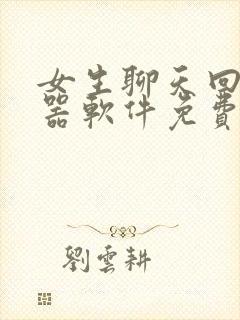 女生聊天回
器軟件免費
劉雲耕